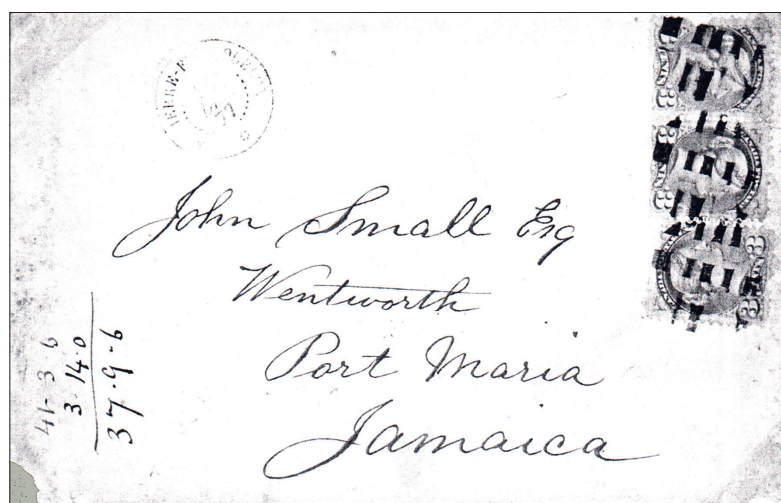 John Small Esq
Wentworth
Port Maria
Jamaica
41-3-6
3-14-0
37-9-6
3 3
3 3
3 3